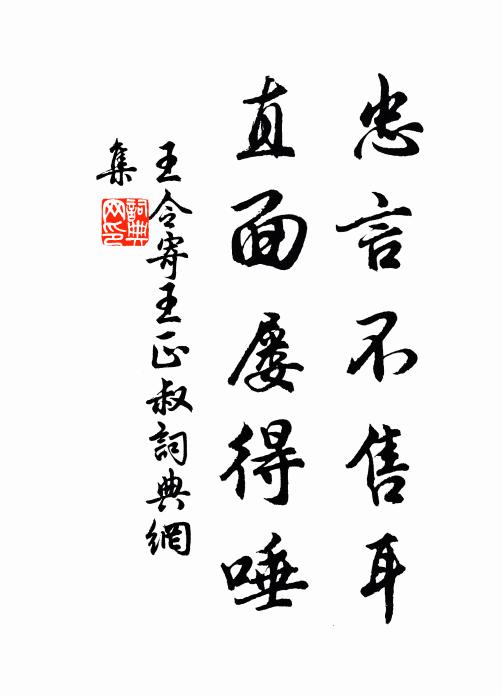 忠言不售耳
直面屡得唾
王令寄王正叔詞典網
集
詞典
网印